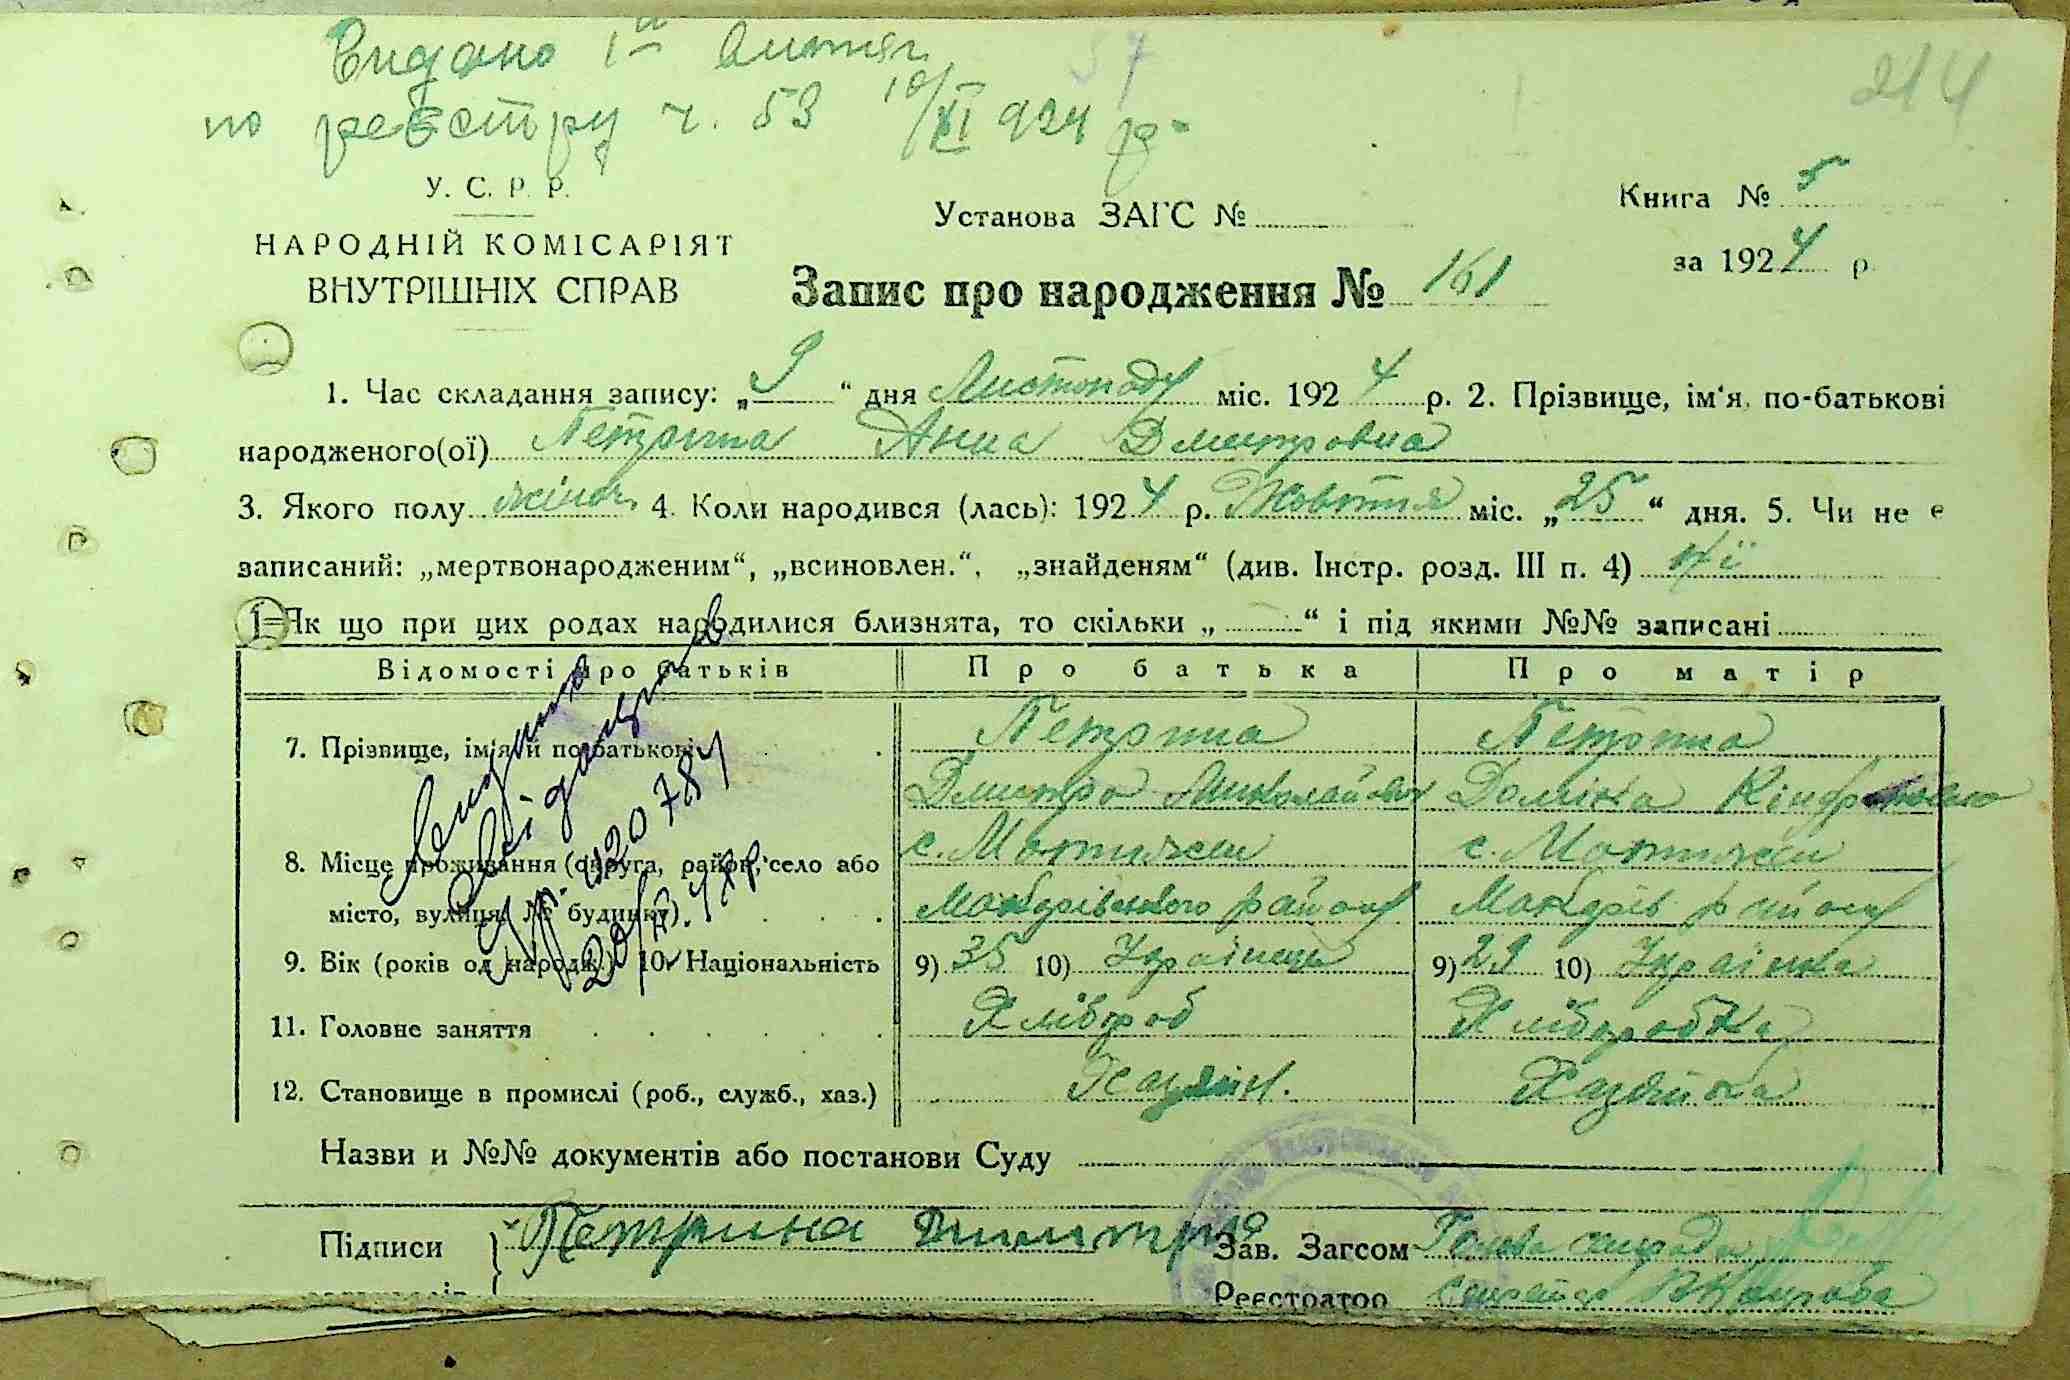 Видано 1й витяг
по реєстру ч. 53 10/XI 924 р.
57
214
У. С. Р. Р.
НАРОДНІЙ КОМІСАРІЯТ
ВНУТРІШНІХ СПРАВ
Установа ЗАГС №
Книга № 5
за 1924 р.
Запис про народження № 161
1. Час складання запису: „9“ дня Листопаду міс. 1924 р. 2. Прізвище, ім'я, по-батькові
народженого(ої) Петрина Анна Дмитровна
3. Якого полу жіноч. 4. Коли народився (лась): 1924 р. Жовтня міс. „25“ дня. 5. Чи не є
записаний: „мертвонародженим“, „всиновлен.“, „знайденям“ (див. Інстр. розд. III п. 4) ні
Як що при цих родах народилися близнята, то скільки „ “ і під якими №№ записані
Відомості про батьків Про батька Про матір
7. Прізвище, ім'я й по-батькові Петрина Петрина
Дмитро Миколайович Домініка
8. Місце проживання (округа, район, село або с. Мотижин с. Мотижин
місто, вулиця, № будинку) Макарівського району Макарів. району
9. Вік (років од народж.) 10. Національність 9) 35 10) Українець 9) 29 10) Українка
11. Головне заняття Хлібороб Хліборобка
12. Становище в промислі (роб., служб., хаз.) Хазяін. Хазяйка
Видано
свідоцтво
420784
Назви и №№ документів або постанови Суду
Підписи Петрина Дмитро Зав. Загсом Голова сільради
Реєстратор секретар